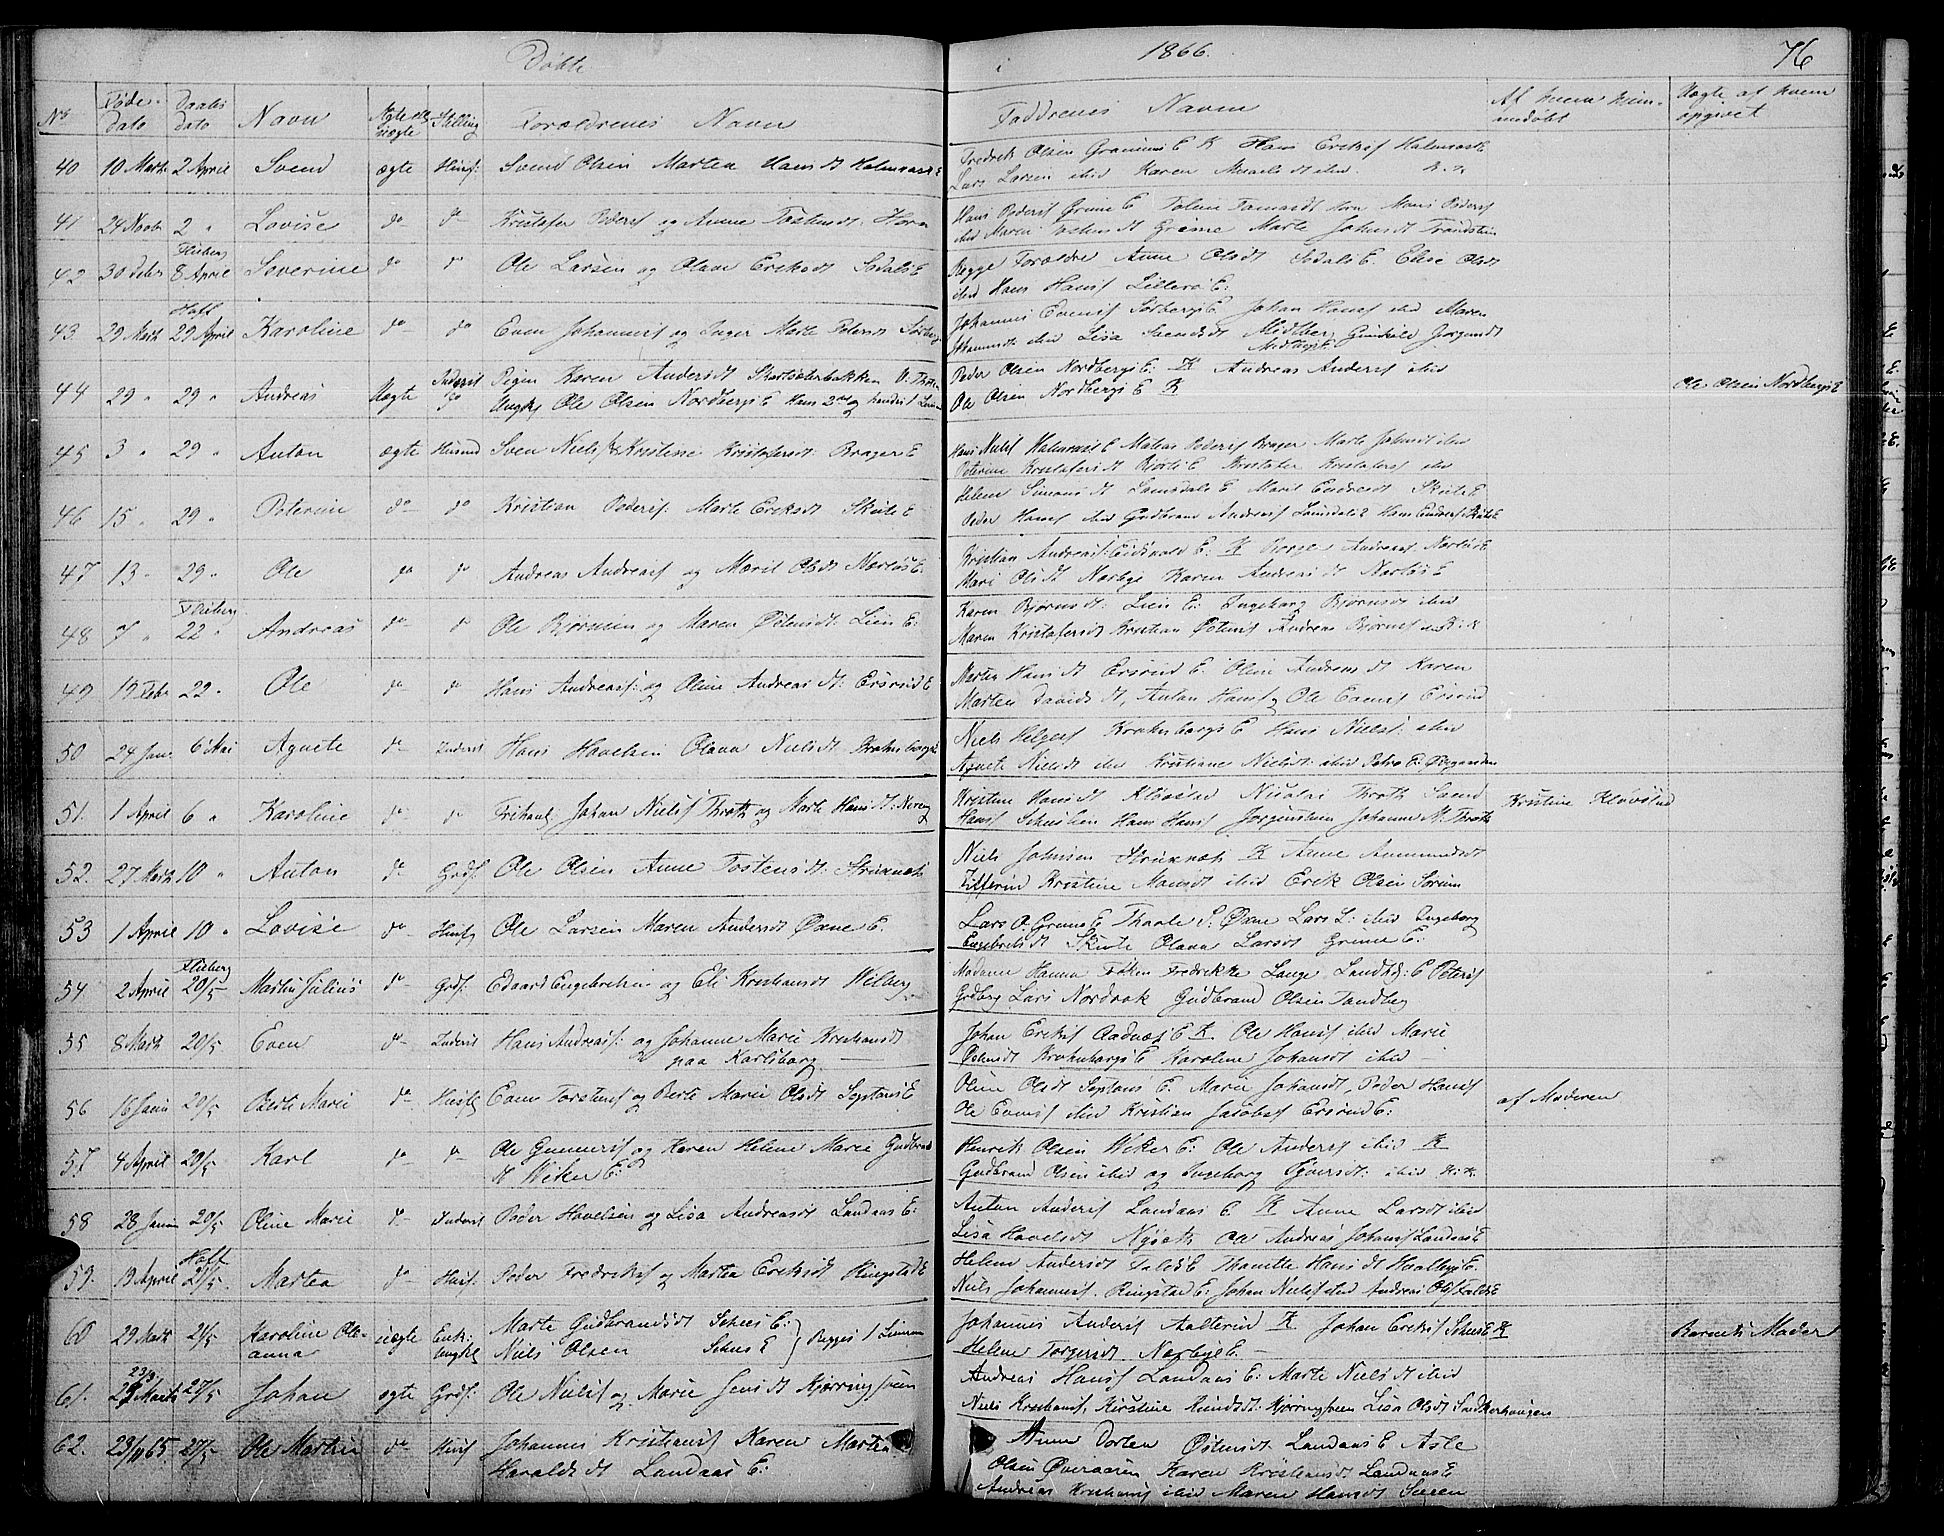 Døbte i 1866. 76
No Føde-dato Daabs dato Navn Ægte ell. uægte Stilling Forældrenes Navn Faddrenes Navn Af hvem hjemmedøbt Uægte af hvem opgivet
40 10 Marts 2 April Svend ægte Huusf: Svend Olsen Martea Hansdt Halmrast E
Fredrik Olsen Grimms E K Hans Eriksf Halmrast E
Lars Larsen ibid Karen ibid K. K
41 24 Novbr 2 " Lovise do do Kristofer Pedersf og Anne Tostensdt Horn
Hans Pedersf Grime E Hans Pedersf
ibid Maren Tostensdt Grime Marte Johnsdt
42 30 Debr Flieberg 8 April Severine do do Ole Larsen og Olava Eriksdt Sodals E
Begge Forældre Anne Olsdt Sodals E. Elise Olsdt
ibid Hans Hansf Lillerø E:
43 29 Marts Hoff 29 April Karoline do do Even Johannesf og Inger Marte Pedersdt Sørberg
Johannes Evensf Sørbergs E Johan Hansf ibid Maren
Johannesdt ibid Lisa Svendsdt Midtberg Gunhild Jørgensdt
44 29 " 29 " Andreas Uægte Inderst do Pigen Karen Andersdt Skartsæterbakken V. Thoten
Ungkj Ole Olsen Nordbergs E Hans 2det og hendes 1 Leierm
Peder Olsen Nordbergs E: K Andreas Andersf ibid
Ole Olsen Nordbergs E K
Ole Olsen Nordbergs E
45 3 " 29 " Anton ægte Husmd Sven Nielsf Kristine Kristofersdt: Brager E
Hans Nielsf Halmrast E Matias Pedersf Brager Marte Johnsdt ibid
Peterine Kristofersdt Bjørli E Kristofer Kristofersf ibid
46 15 " 29 " Peterine do do Kristian Pedersf: Marte Eriksdt Skute E
Helene Simonsdt Lomsdals E Marit Endresdt Skute E
Peder Hansf ibid Gudbrand Andersf Lomsdals E Hans Endersf Skute E
47 13 " 29 " Ole do do Andreas Andreasf og Marit Olsdt Nærløs E.
Kristian Andreasf: Eidsvold E: K Børge Andreasf Nerlie E
Mari Olsdt Nørbye Karen Andreasdt Nærløs E
48 7 " Flieberg 22 " Andreas do do Ole Bjørnsen og Maren Østensdt: Lien E:
Karen Bjørnsdt: Lien E: Ingeborg Bjørnsdt ibid
Maren Kristofersdt Kristian Østensf Andreas Bjørnsf K. K
49 19 Febr 22 " Ole do do Hans Andreasf: og Oline Andreasdt: Ersrud E
Martea Hansdt Ersrud E. Olin Andreasdt Karen
Martea Davidsdt, Anton Hansf og Ole Evensf Ersrud
50 24 Jan. 6 Mai Agnete do Inderst Hans Havelsen Olava Nielsdt Krohnborgs E
Niels Helgesf Krohnborgs E Hans Nielsf: ibid
Agnete Nielsdt ibid Kristiane Nielsdt: ibid
51. 1 April 6 " Karoline do do Johan Nielsf Throth og Marte Hansdt: Nereng
Kristine Hansdt Kløvstad Nicolai Throth Svend
Hansf Hans Hansf Jørgenstuen Johanne M. Throth
Kristine Kløvstad
52. 27 Marts 10 " Anton do Grdf: Ole Olsen Anne Tostensdt: Strixnæs
Niels Johnsen Strixnæs K Anne Ammundsdt
Kristine Hansdt ibid Erik Olsen Sørum
53 1 April 10 " Lovise do Husf Ole Larsen Maren Andersdt Øxne E.
Lars O. Grime E Thorle S. Øxne Lars L: ibid Ingeborg
Engebretsdt Skute Olava Larsdt Grime E:
54 2 April Flieberg 20/5 Martin Julius do Grdf: Edvard Engebretsen og Eli Kristiansdt Wilberg
Madame Hanna Frøken Fredrikke Lange Landhd: C Petersf
Lars Nordvok Gudbrand Olsen Tandberg
55 8 Marts 20/5 Even do Inderst Hans Andreasf: og Johanne Marie Kristiansdt
paa Karlsborg
Johan Eriksf Aadnæs E K Ole Hansf ibid Marie
Østensdt Krohnborgs E Karoline Johansdt ibid
56 16 Janu 20/5 Berte Marie do Husf Even Torstensf og Berte Marie Olsdt Soptans E
Oline Olsdt Soptans E. Marie Johansdt, Peder Hansf
Ole Evensf ibid Kristian Jacobsf Ersrud E:
af Moderen
57. 4 April 20/5 Karl do do Ole Gunnersf og Karen Helene Marie Gudbrands
dt Wiker E:
Henrik Olsen Wiker E: Ole Andersf ibid K
Gudbrand Olsen ibid og Ingeborg Syversdt: ibid K. K.
58 28 Janu 20/5 Oline Marie do Inderst Peder Havelsen og Lisa Andreasdt Landaas E:
Anton Andersf Landaas E K Anne Larsdt ibid
Lisa Havelsdt Nysæt Ole Andreas Johansf Landaas E
59. 19 April Hoff 21/5 Martea do Husf: Peder Fredriksf og Martea Eriksdt Ringstad E
Helene Andersdt Fald E Thanette Hansdt E.
Niels Johannesf. Ringstad E: Johan Nielsf ibid Andreas Olsf Fald E
60 29 Marts 21/5 Karoline Oleanna uægte Enk: Ungkf Marte Gudbrandsdt Schies E:
Niels Olsen Schies E } Begges 1 Leierm
Johannes Andersf K Johan Eriksf Schies E K
Helene Torgersdt Nørbye E
Barnets Moder
61. 29 Marts 27/5 Johan ægte Grdf: Ole Nielsf og Marie Jensdt Kjørringsveen
Andreas Hansf Landaas E: Marte Nielsdt ibid
Niels Kristiansf, Kirstine Knudsdt: Kjørringsveen Lisa Olsdt Landkerhaugen
62. 23/11 65. 27/5 Ole Martin do Husf Johannes Kristiansf Karen Martea
Haraldsdt Landaas E:
Anne Dorten Østensdt Landaas E Asle
Olsen Øveraaren Karen Kristiansdt Landaas E
Andreas Kristiansf ibid Maren Hansdt Sveen